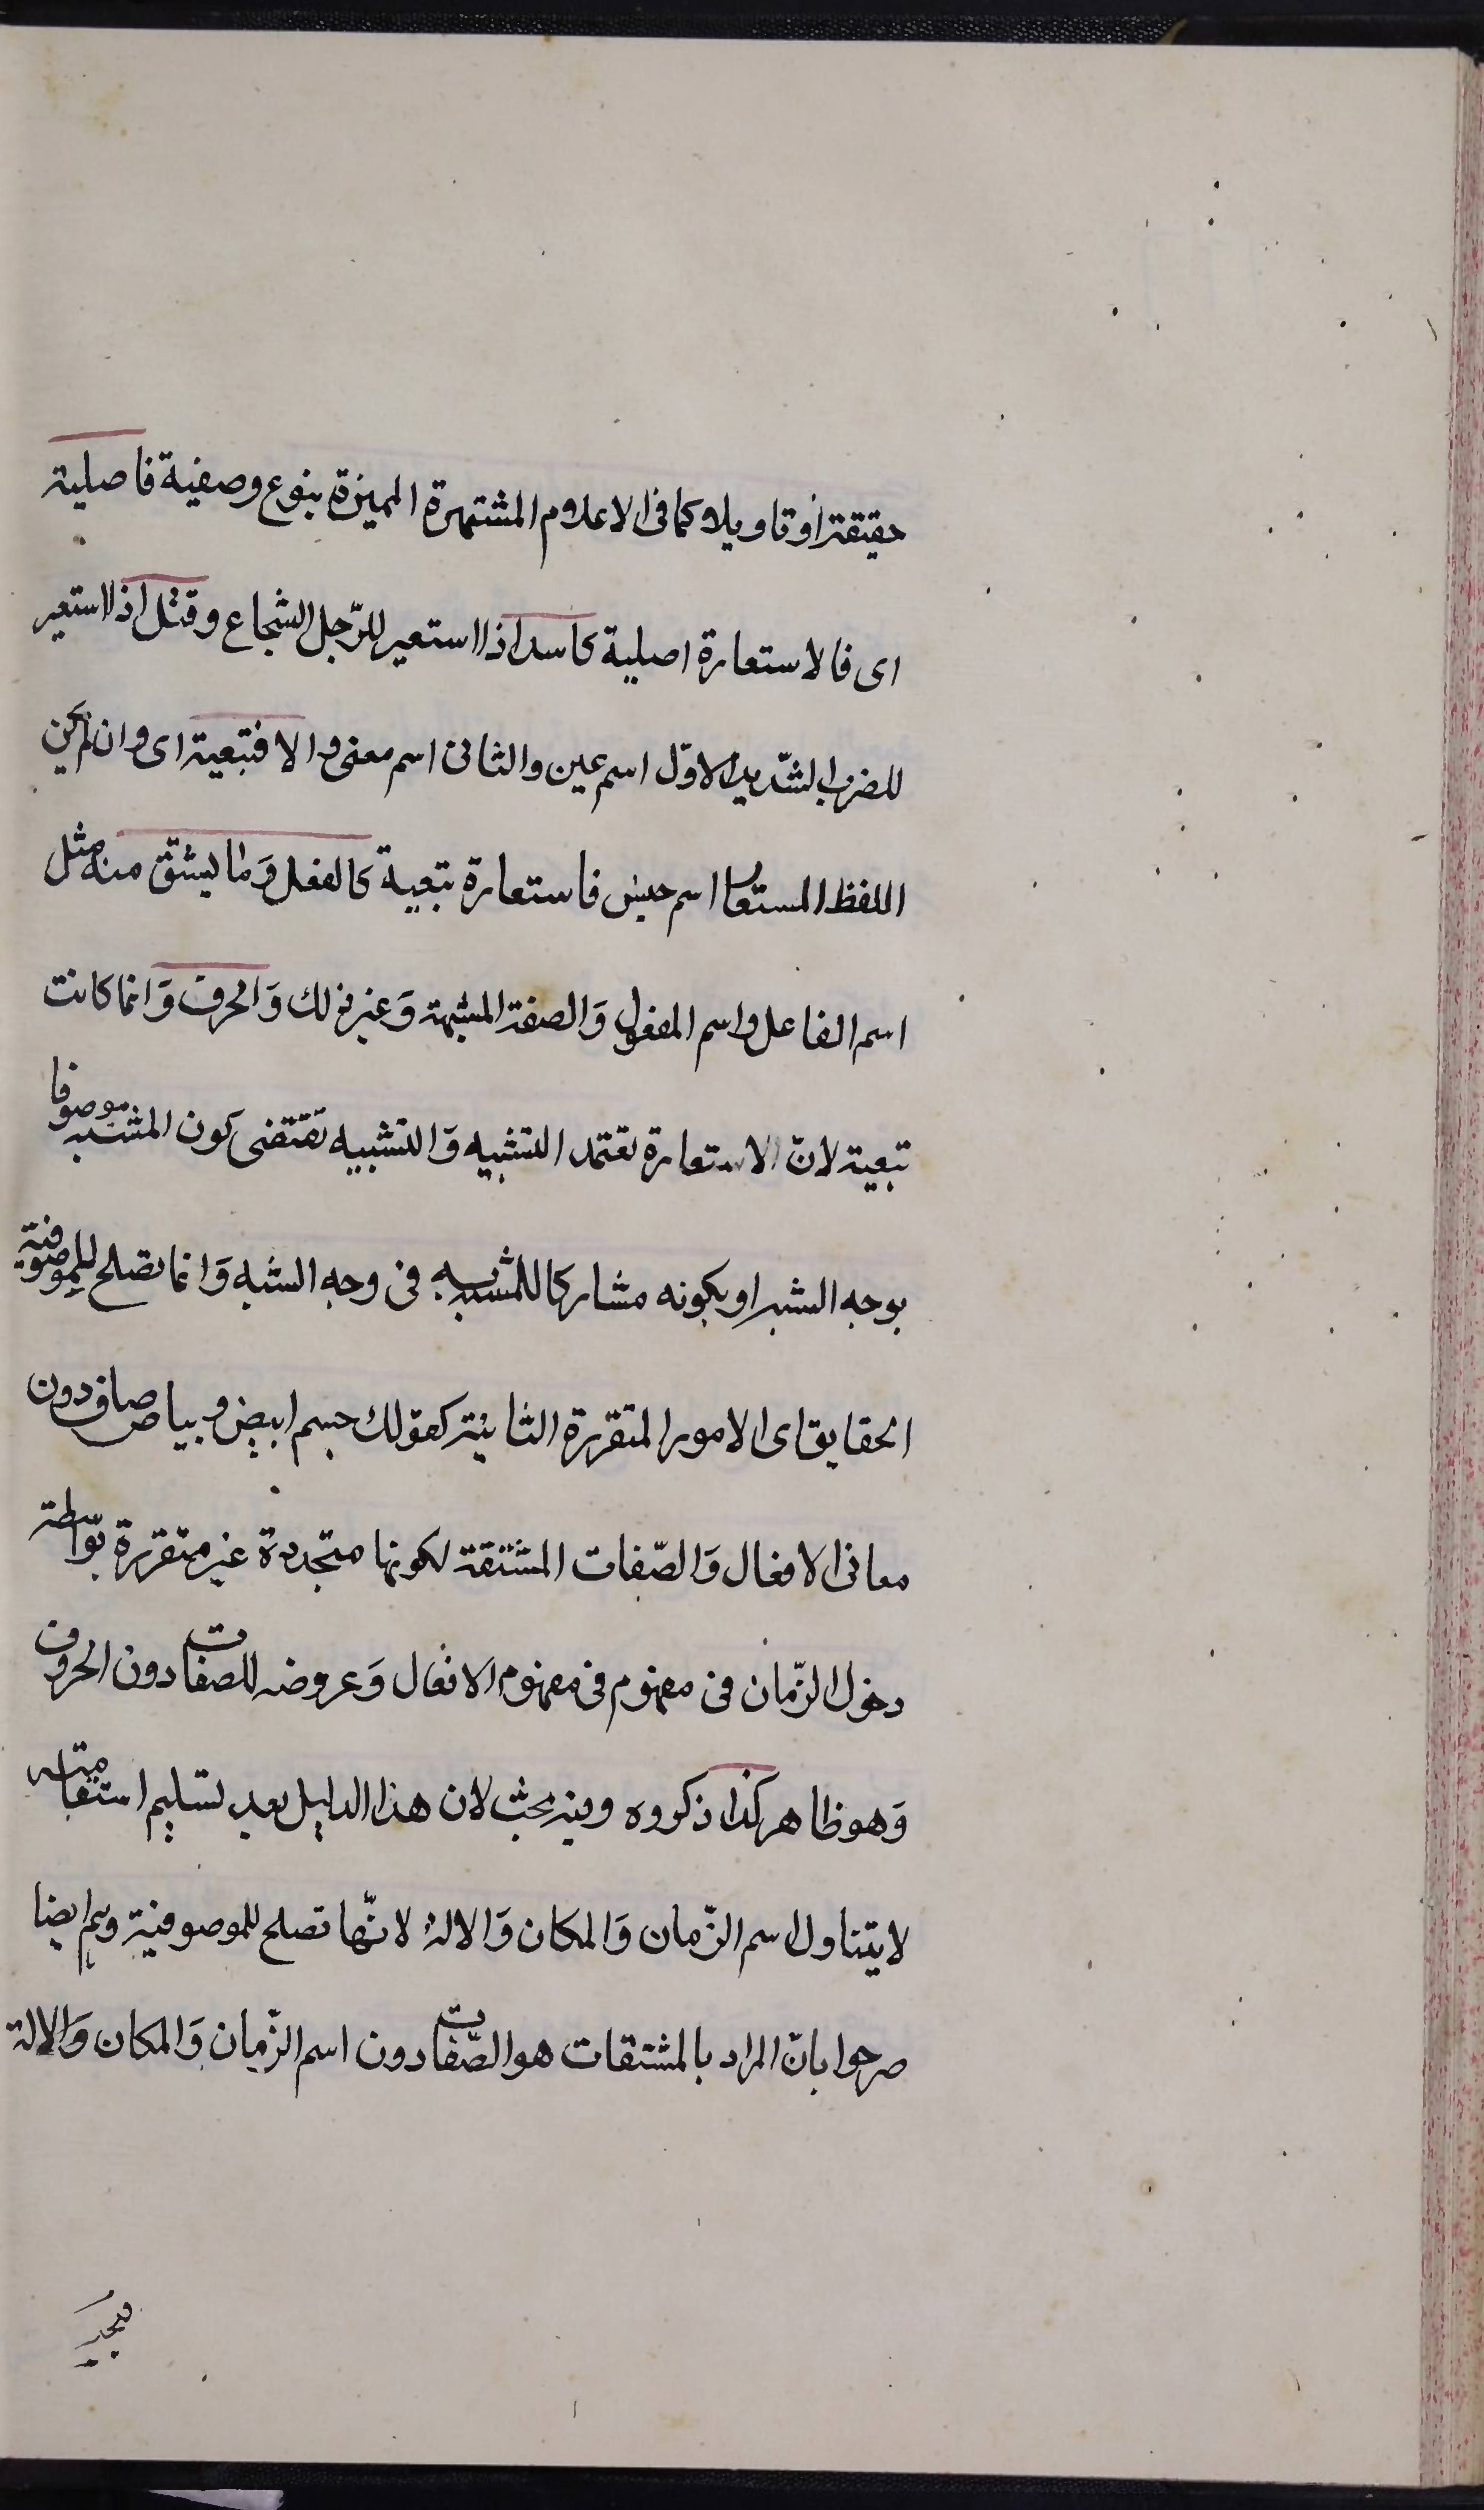 حقيقة أو تاويلا كما فى الاعلام المشتهرة المميزة بنوع وصفية فاصلية
اى فالاستعارة اصلية كاسد اذا استعير للرّجل الشجاع وقتل اذا استعير
للضرب الشّديد الاوّل اسم عين والثانى اسم معنى والا فتبعية اى وان لم يكن
اللفظ المستعار اسم جنس فاستعارة تبعية كالفعل وَما يشتقّ منه مثل
اسم الفاعل واسم المفعول وَالصفة المشبهة وَغير ذلك وَالحرف وَانما كانت
تبعية لانّ الاستعارة تعتمد التشبيه وَالتشبيه تقتضى كون المشبه موصوفا
بوجه الشبه او بكونه مشاركا للمشبه به فى وجه الشبه وَانما تصلح للموصوفية
الحقايق اى الامور المتقررة الثابتة كقولك جسم ابيض وبياض صاف دون
معانى الافعال وَالصّفات المشتقة لكونها متجددة غير متقررة بواسطة
دخول الزّمان فى مفهوم فى مفهوم الافعال وَعروضه للصفات دون الحروف
وَهو ظاهر كذا ذكروه وفيه بحث لان هذا الدليل بعد تسليم استقامته
لا يتناول اسم الزّمان وَالمكان وَالالة لانّها تصلح للموصوفية وهم ايضا
صرحوا بانّ المراد بالمشتقات هو الصّفات دون اسم الزّمان وَالمكان وَالالة
فيجب